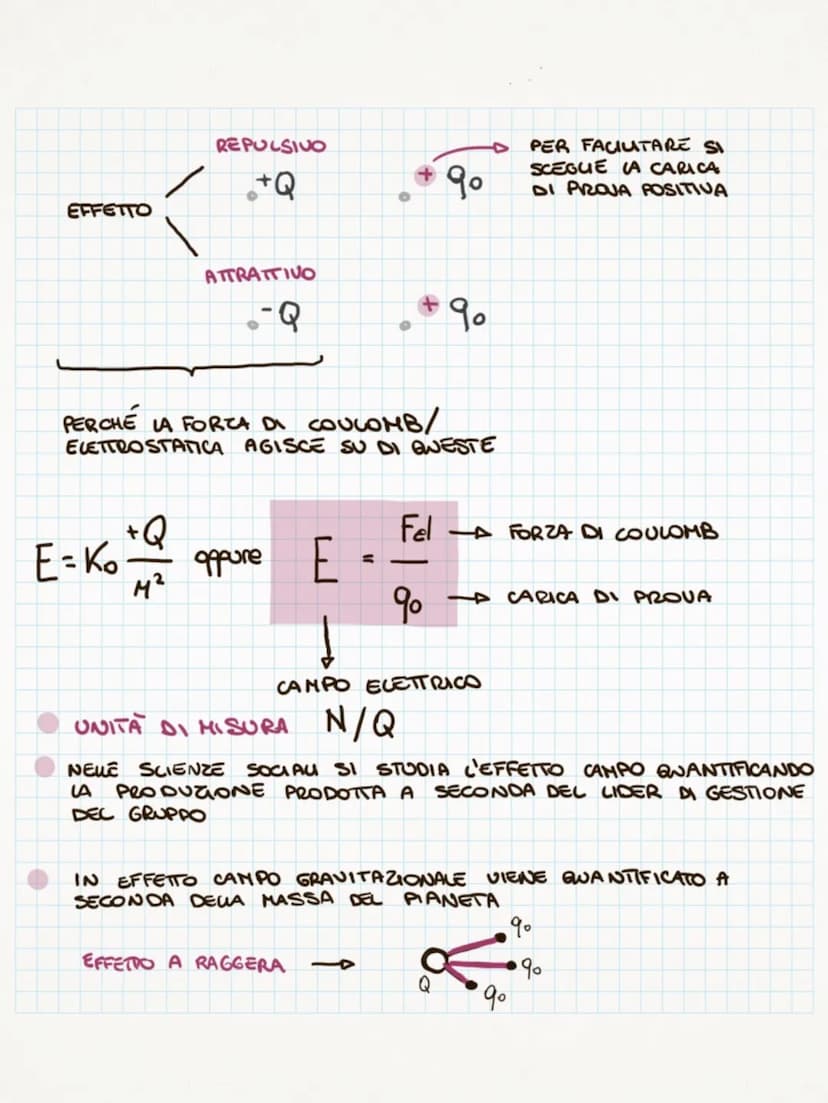 REPULSIVO
+Q
+ q0
PER FACILITARE SI
SCEGLIE LA CARICA
DI PROVA POSITIVA
EFFETTO
ATTRATTIVO
-Q
+ q0
PERCHÉ LA FORZA DI COULOMB/
ELETTROSTATICA AGISCE SU DI QUESTE
E = K0 +Q / M² oppure E = Fel / q0
FORZA DI COULOMB
CARICA DI PROVA
CAMPO ELETTRICO
UNITÀ DI MISURA N/Q
NELLE SCIENZE SOCIALI SI STUDIA L'EFFETTO CAMPO QUANTIFICANDO
LA PRODUZIONE PRODOTTA A SECONDA DEL LIDER DI GESTIONE
DEL GRUPPO
IN EFFETTO CAMPO GRAVITAZIONALE VIENE QUANTIFICATO A
SECONDA DELLA MASSA DEL PIANETA
EFFETTO A RAGGERA
Q
q0
q0
q0